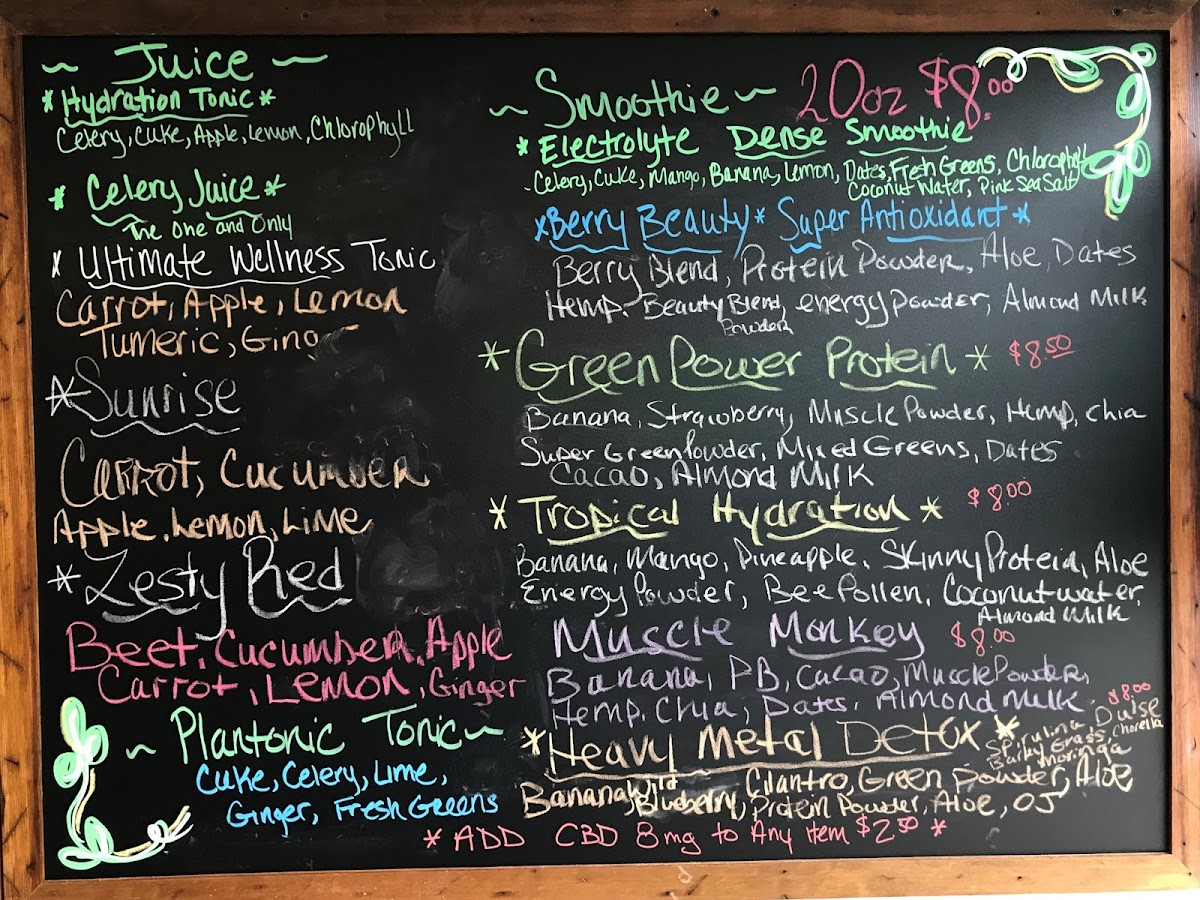 ~ Juice ~
*Hydration Tonic*
Celery, Cuke, Apple, Lemon, Chlorophyll
* Celery Juice*
The One and Only
* Ultimate Wellness Tonic
Carrot, Apple, Lemon
Tumeric, Ging
*Sunrise
Carrot, Cucumber
Apple, Lemon, Lime
*Zesty Red
Beet, Cucumber, Apple
Carrot, Lemon, Ginger
~ Plantonic Tonic~
Cuke, Celery, Lime,
Ginger, Fresh Greens
~ Smoothie ~ 20oz $8.00
* Electrolyte Dense Smoothie
-Celery, Cuke, Mango, Banana, Lemon, Dates, Fresh Greens, Chlorophyll
Coconut Water, Pink Sea Salt
*Berry Beauty* Super Antioxidant*
Berry Blend, Protein Powder, Aloe, Dates
Hemp. Beauty Blend, energy powder, Almond Milk
Powder
*Green Power Protein* $8.50
Banana, Strawberry, Muscle Powder, Hemp, Chia
Super Green Powder, Mixed Greens, Dates
Cacao, Almond Milk
* Tropical Hydration * $8.00
Banana, Mango, Pineapple, Skinny Protein, Aloe
Energy Powder, Bee Pollen, Coconut water,
Almond Milk
Muscle Monkey $8.00
Banana, PB, Cacao, Muscle Powder,
Hemp, Chia, Dates, Almond Milk
*Heavy Metal Detox * $8.00
Spirulina Dulse
Barley Grass, Chorella
Moringa
Banana Wild Blueberry, Cilantro, Green powder, Aloe
Protein Powder, Aloe, OJ
* ADD CBD 8mg to Any Item $2.50 *